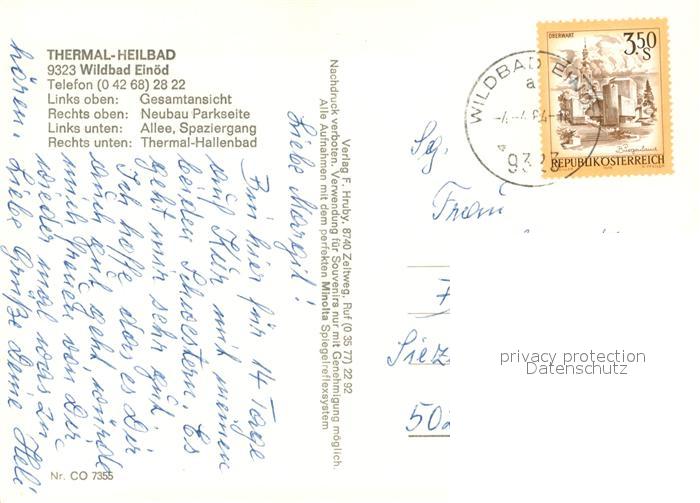 THERMAL-HEILBAD
9323 Wildbad Einöd
Telefon (0 42 68) 28 22
Links oben: Gesamtansicht
Rechts oben: Neubau Parkseite
Links unten: Allee, Spaziergang
Rechts unten: Thermal-Hallenbad
Liebe Margit!
Bin hier für 14 Tage
auf Kur mit meinen
beiden Schwestern. Es
geht mir sehr gut.
Ich hoffe das es Dir
auch gut geht würde
mich freuen von Dir
wieder mal was zu
hören.
Liebe Grüße Deine Heli
Nr. CO 7355
Verlag F. Hruby, 8740 Zeltweg, Ruf (0 35 77) 22 92
Nachdruck verboten. Verwendung für Souvenirs nur mit Genehmigung möglich.
Alle Aufnahmen mit dem perfekten Minolta Spiegelreflexsystem
WILDBAD EINÖD
a
9323
OBERWART
3.50
S
Burgenland
REPUBLIK ÖSTERREICH
Frau
privacy protection
Datenschutz